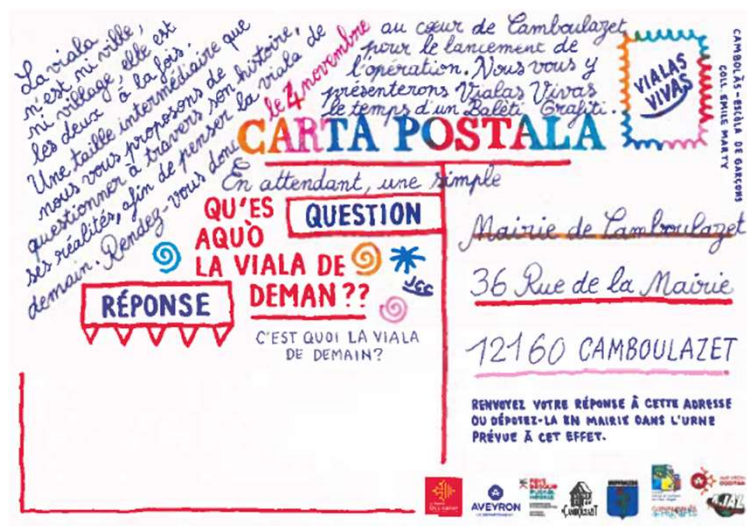 La viala
n'est ni ville,
ni village, elle est
les deux à la fois.
Une taille intermédiaire que
nous vous proposons de
questionner à travers son histoire,
ses réalités, afin de penser la viala de
demain. Rendez-vous donc le 4 novembre
au cœur de Camboulazet,
pour le lancement de
l'opération. Nous vous y
présenterons Vialas Vivas
le temps d'un Balèti Grafiti.
VIALAS
VIVAS
CAMBOLAS-ESCÒLA DE GARÇONS
COLL. EMILE MARTY
CARTA POSTALA
En attendant, une simple
QUESTION
QU'ES
AQUÒ
LA VIALA DE
DEMAN??
RÉPONSE
C'EST QUOI LA VIALA
DE DEMAIN?
Mairie de Camboulazet
36 Rue de la Mairie
12160 CAMBOULAZET
RENVOYEZ VOTRE RÉPONSE À CETTE ADRESSE
OU DÉPOSEZ-LA EN MAIRIE DANS L'URNE
PRÉVUE À CET EFFET.
AVEYRON